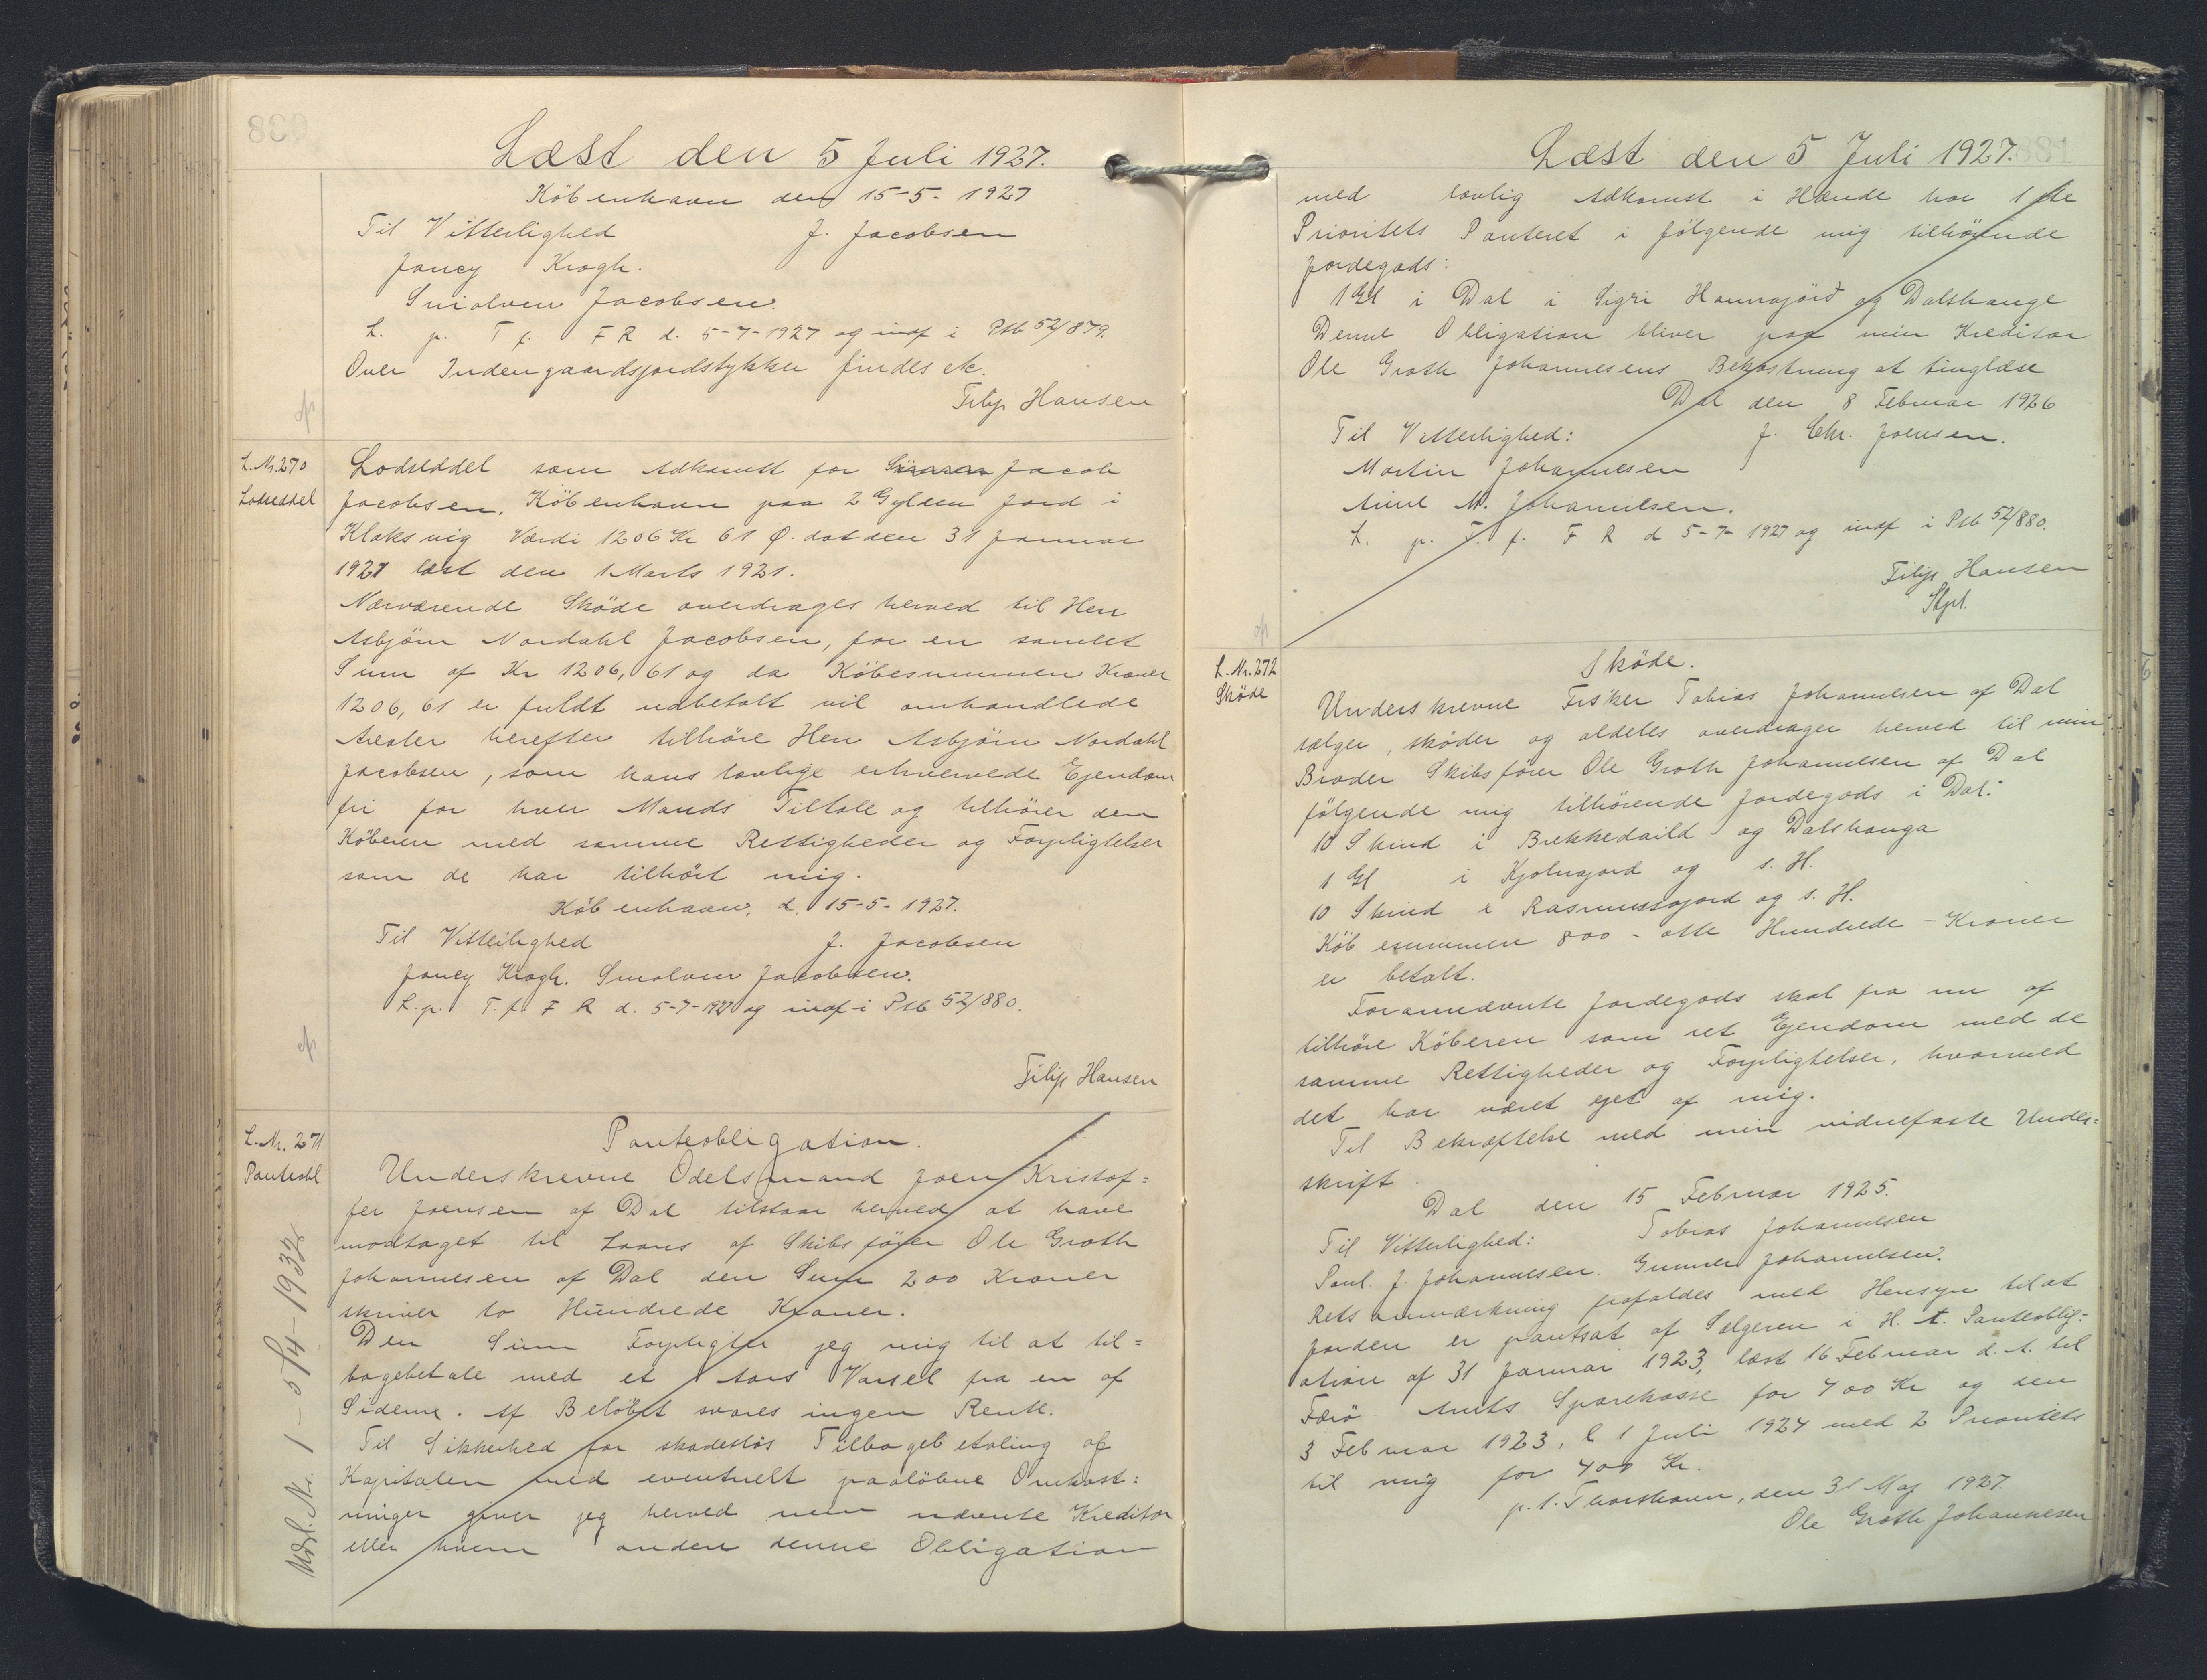 Læst den 5 Juli 1927.
København den 15-5-1927
Til Vitterlighed J. Jacobsen
Jancy Krogh.
Jacobsen.
L. p. T f. F R d. 5-7-1927 og indf i Ptb 52/879.
Over Indengaardsjordstykker findes ek.
Filip Hansen
L.Nr.270
Lodseddel
Lodseddel som Adkomst for Jacob
Jacobsen, København paa 2 Gylden Jord i
Klaksvig Værdi 1206 Kr 61 Ø. dat den 31 Januar
1921 læst den 1 Marts 1921.
Nærværende Skøde overdrages herved til Herr
Asbjörn Nordahl Jacobsen, for en samlet
Sum af Kr 1206,61 og da Købesummen Kroner
1206,61 er fuldt udbetalt vil omhandlede
Arealer herefter tilhöre Herr Asbjörn Nordahl
Jacobsen, som hans lovlige erhvervede Ejendom
fri for hver Mands Tiltale og tilhörer den
Köberen med samme Rettigheder og Forpligtelser
som de har tilhört mig.
København, d. 15-5-1927.
Til Vitterlighed J. Jacobsen
Jancy Krogh. Jacobsen.
L. p. T. f. F R d. 5-7-1927 og indf i Ptb 52/880.
Filip Hansen
L.Nr. 271
Panteobl
Panteobligation.
Underskrevne Odelsmand Joen Kristof=
fer Joensen af Dal tilstaar herved at have
modtaget til Laans af Skibsförer Ole Groth
Johannesen af Dal den Sum 200 Kroner
skriver to Hundrede Kroner.
Den Sum Forpligter jeg mig til at til=
bagebetale med et Aars Varsel fra en af
Siderne. Af Belöbet svares ingen Rente.
Til Sikkerhed for skadeslös Tilbagebetaling af
Kapitalen med eventuelt paalöbne Omkost=
ninger giver jeg herved min nævnte Kreditor
eller hvem anden denne Obligation
Udsl. Nr. 1 - 5/4-1932
Læst den 5 Juli 1927.
med lovlig Adkomst i Hænde har 1ste
Prioritets Panteret i fölgende mig tilhörende
Jordegods:
1 Gl i Dal i Sigri Hannajörd og Dalshauge
Denne Obligation bliver paa min Kreditor
Ole Groth Johannesens Bekostning at tinglæse
Dal den 8 Februar 1926
Til Vitterlighed: J. Chr. Joensen.
Martin Johannesen
M. Johannesen.
L. p. T. f. F R d 5-7-1927 og indf i Ptb 52/880.
Filip Hansen
L.Nr.272
Sköde
Sköde.
Underskrevne Fisker Tobias Johannesen af Dal
sælger, sköder og aldeles overdrager herved til min
Broder Skibsförer Ole Groth Johannesen af Dal
fölgende mig tilhörende Jordegods i Dal:
10 Skind i Brekkedaild og Dalshauga
1 Gl i Kjolnajord og s. H.
10 Skind i Rasmussajord og s. H.
Købesummen 800 - otte Hundrede - Kroner
er betalt.
Forannævnte Jordegods skal fra nu af
tilhöre Köberen som ret Ejendom med de
samme Rettigheder og Forpligtelser, hvormed
det har været ejet af mig.
Til Bekræftelse med min vidnefaste Under=
skrift.
Dal den 15 Februar 1925.
Til Vitterlighed: Tobias Johannesen
Poul. J. Johannesen. Gunner Johannesen.
Retsanmærkning frafaldes med Hensyn til at
Jorden er pantsat af Sælgeren i H. t. Panteoblig=
ation af 31 Januar 1923, læst 16 Februar d. A. til
Færö Amts Sparekasse for 400 Kr og den
3 Februar 1923, l 1 Juli 1924 med 2 Prioritets
til mig for 400 Kr.
p.t. Thorshavn, den 31 Maj 1927.
Ole Groth Johannesen